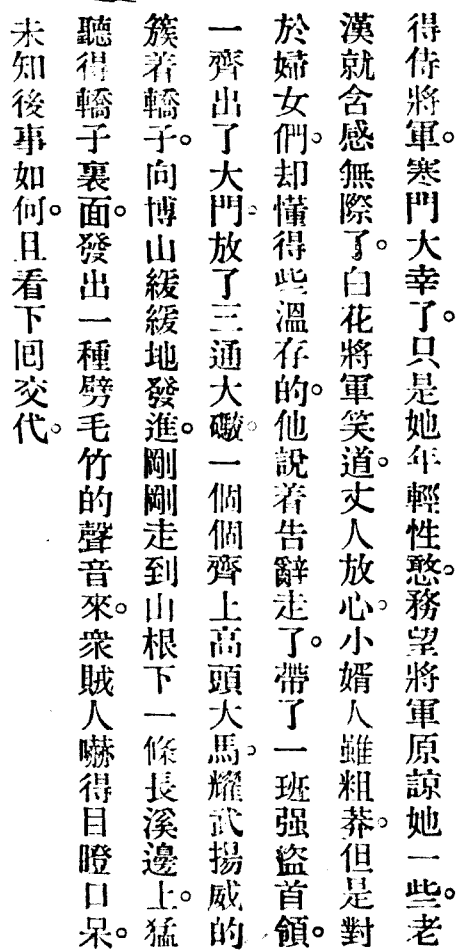 得侍將軍。寒門大幸了。只是她年輕性憨。務望將軍原諒她一些。老
漢就含感無際了。白花將軍笑道。丈人放心。小婿人雖粗莽。但是對
於婦女們。却懂得些溫存的。他說着告辭走了。帶了一班强盜首領。
一齊出了大門。放了三通大礮。一個個齊上高頭大馬。耀武揚威的
簇着轎子。向博山緩緩地發進。剛剛走到山根下一條長溪邊上。猛
聽得轎子裏面。發出一種劈毛竹的聲音來。衆賊人嚇得目瞪口呆。
未知後事如何。且看下囘交代。